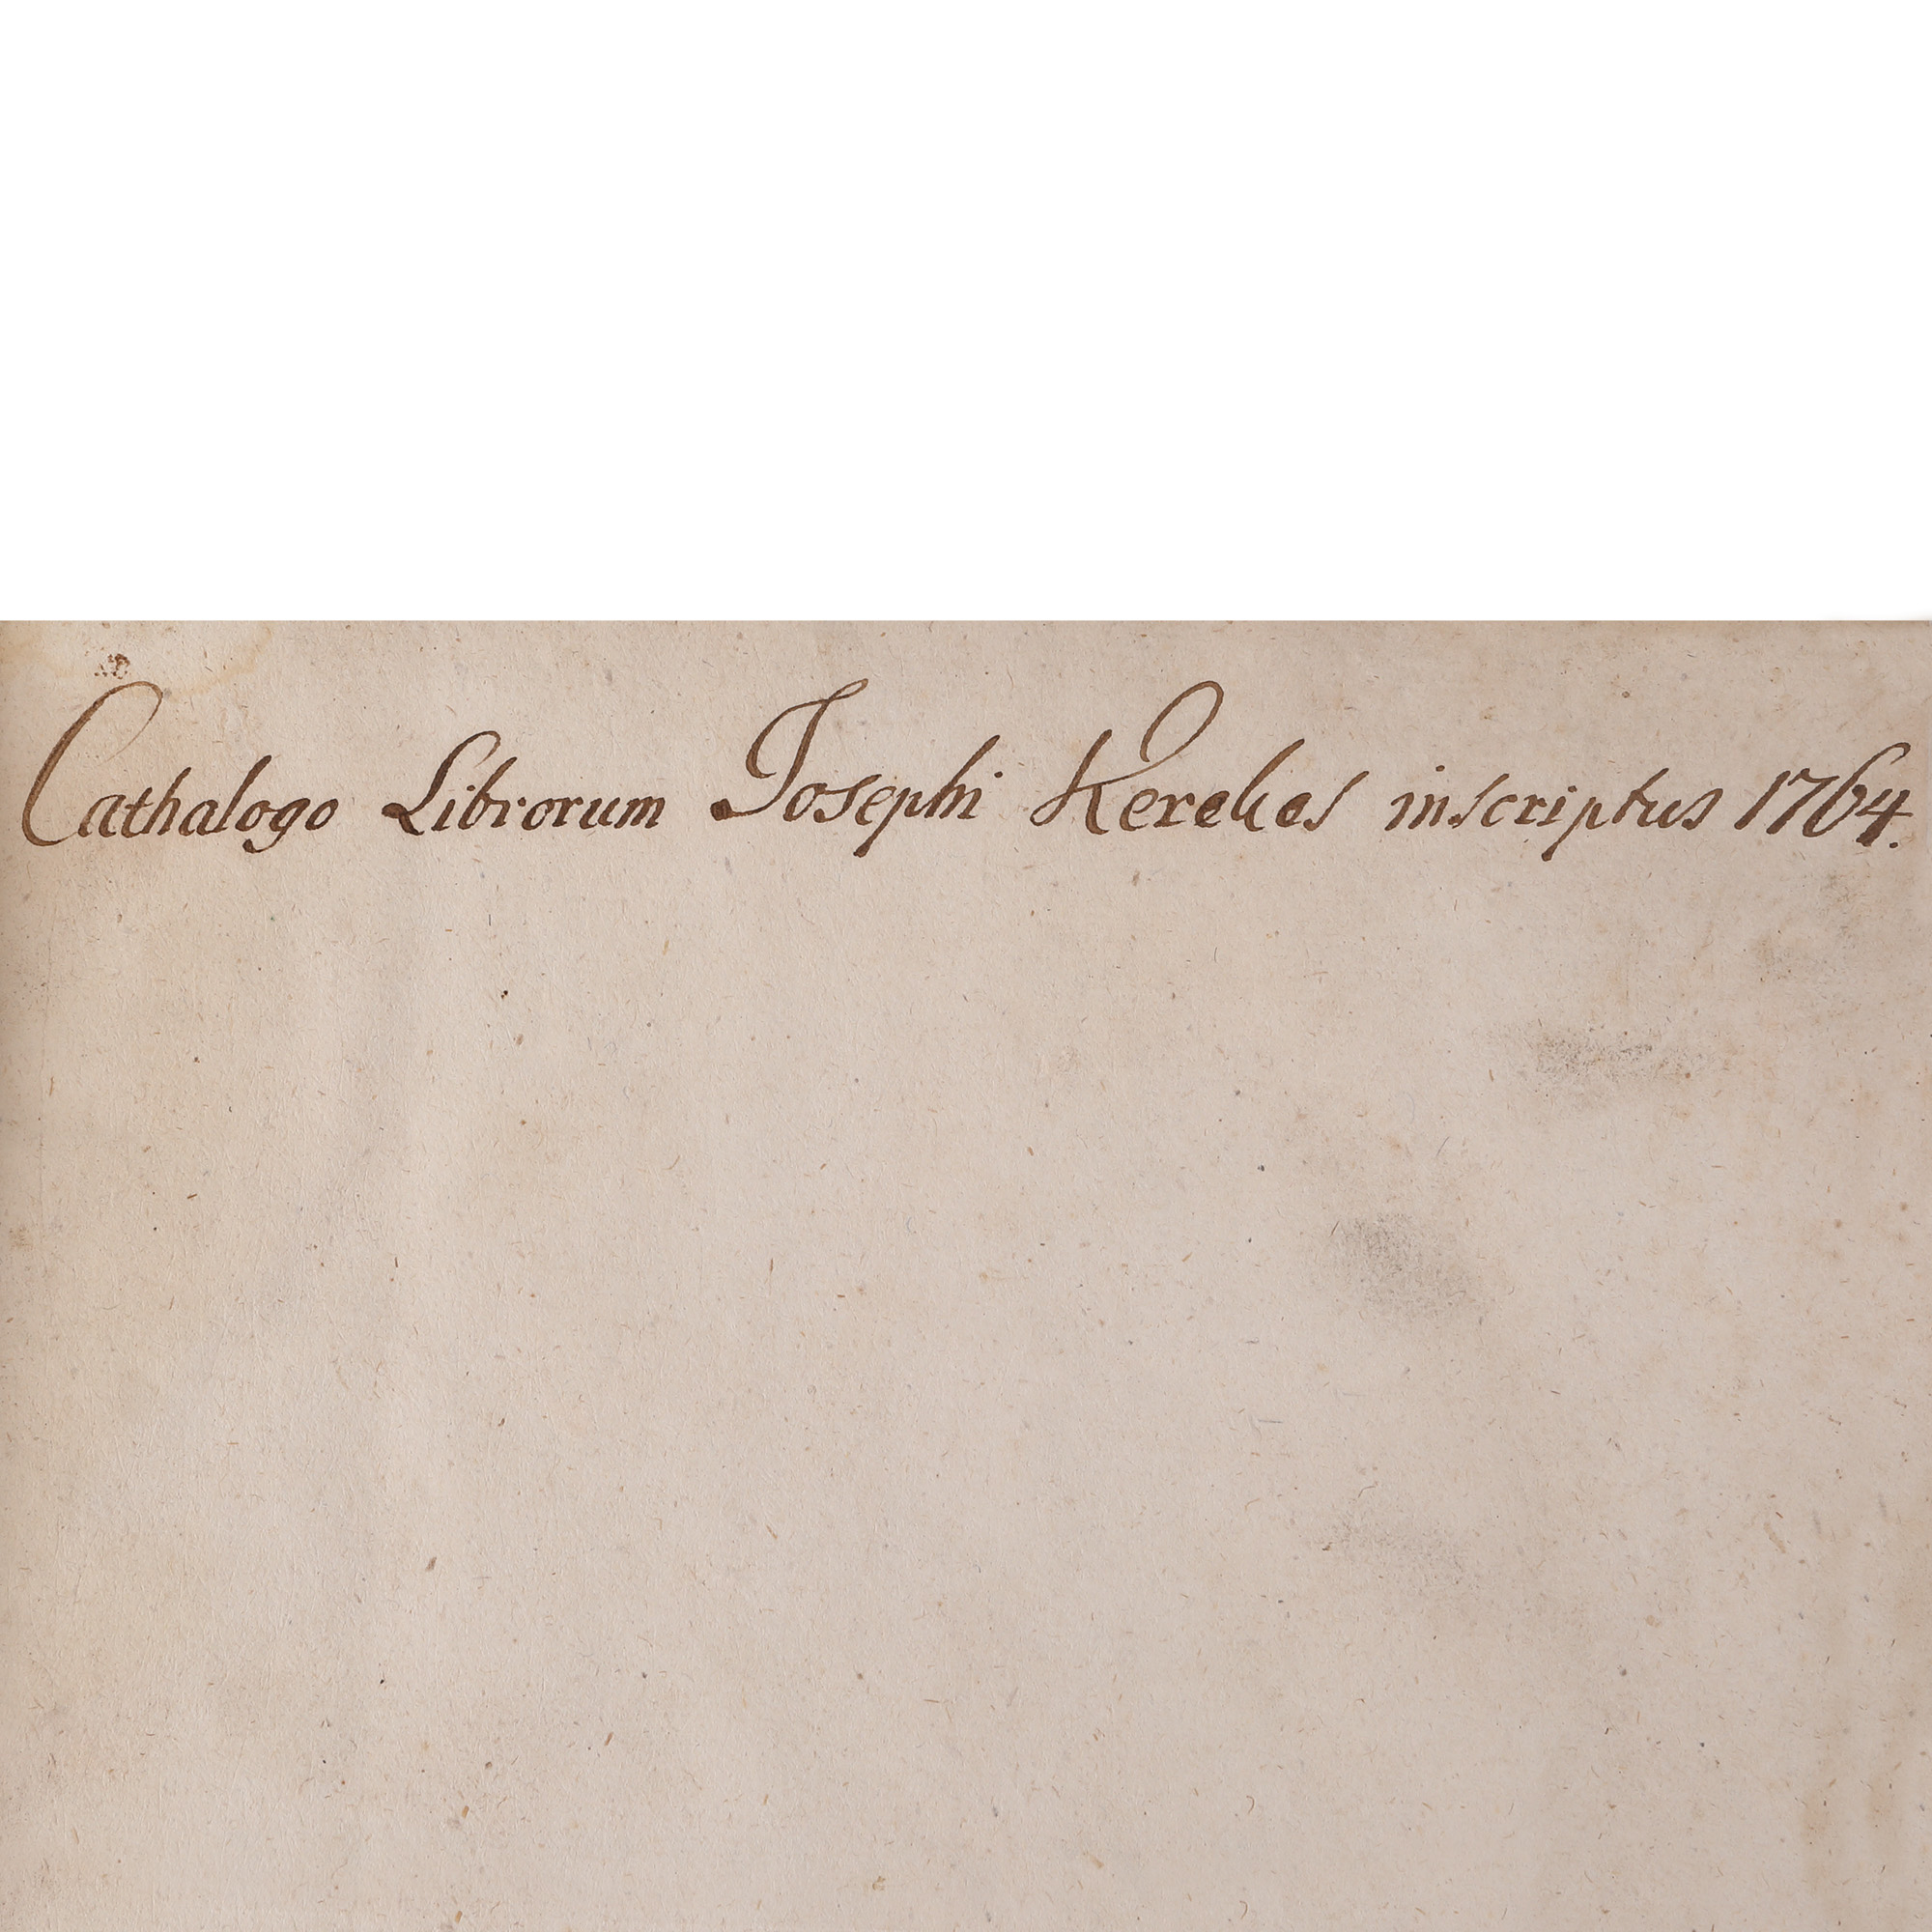 Cathalogo Librorum Josephi Kerekes inscriptus 1764.